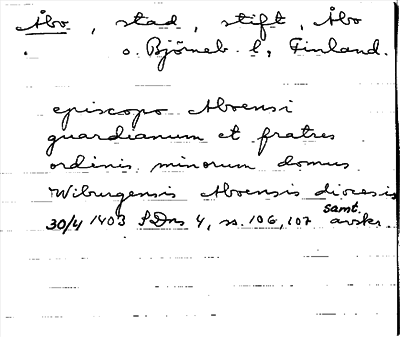 Åbo, stad, stift, Åbo
o. Björneb. l, Finland.
episcopo Aboensi
guardianum et fratres
ordinis minorum domus
Wiburgensis Aboensis diocesis
samt.
30/4 1403 SDns 4, s. 106, 107 avskr.